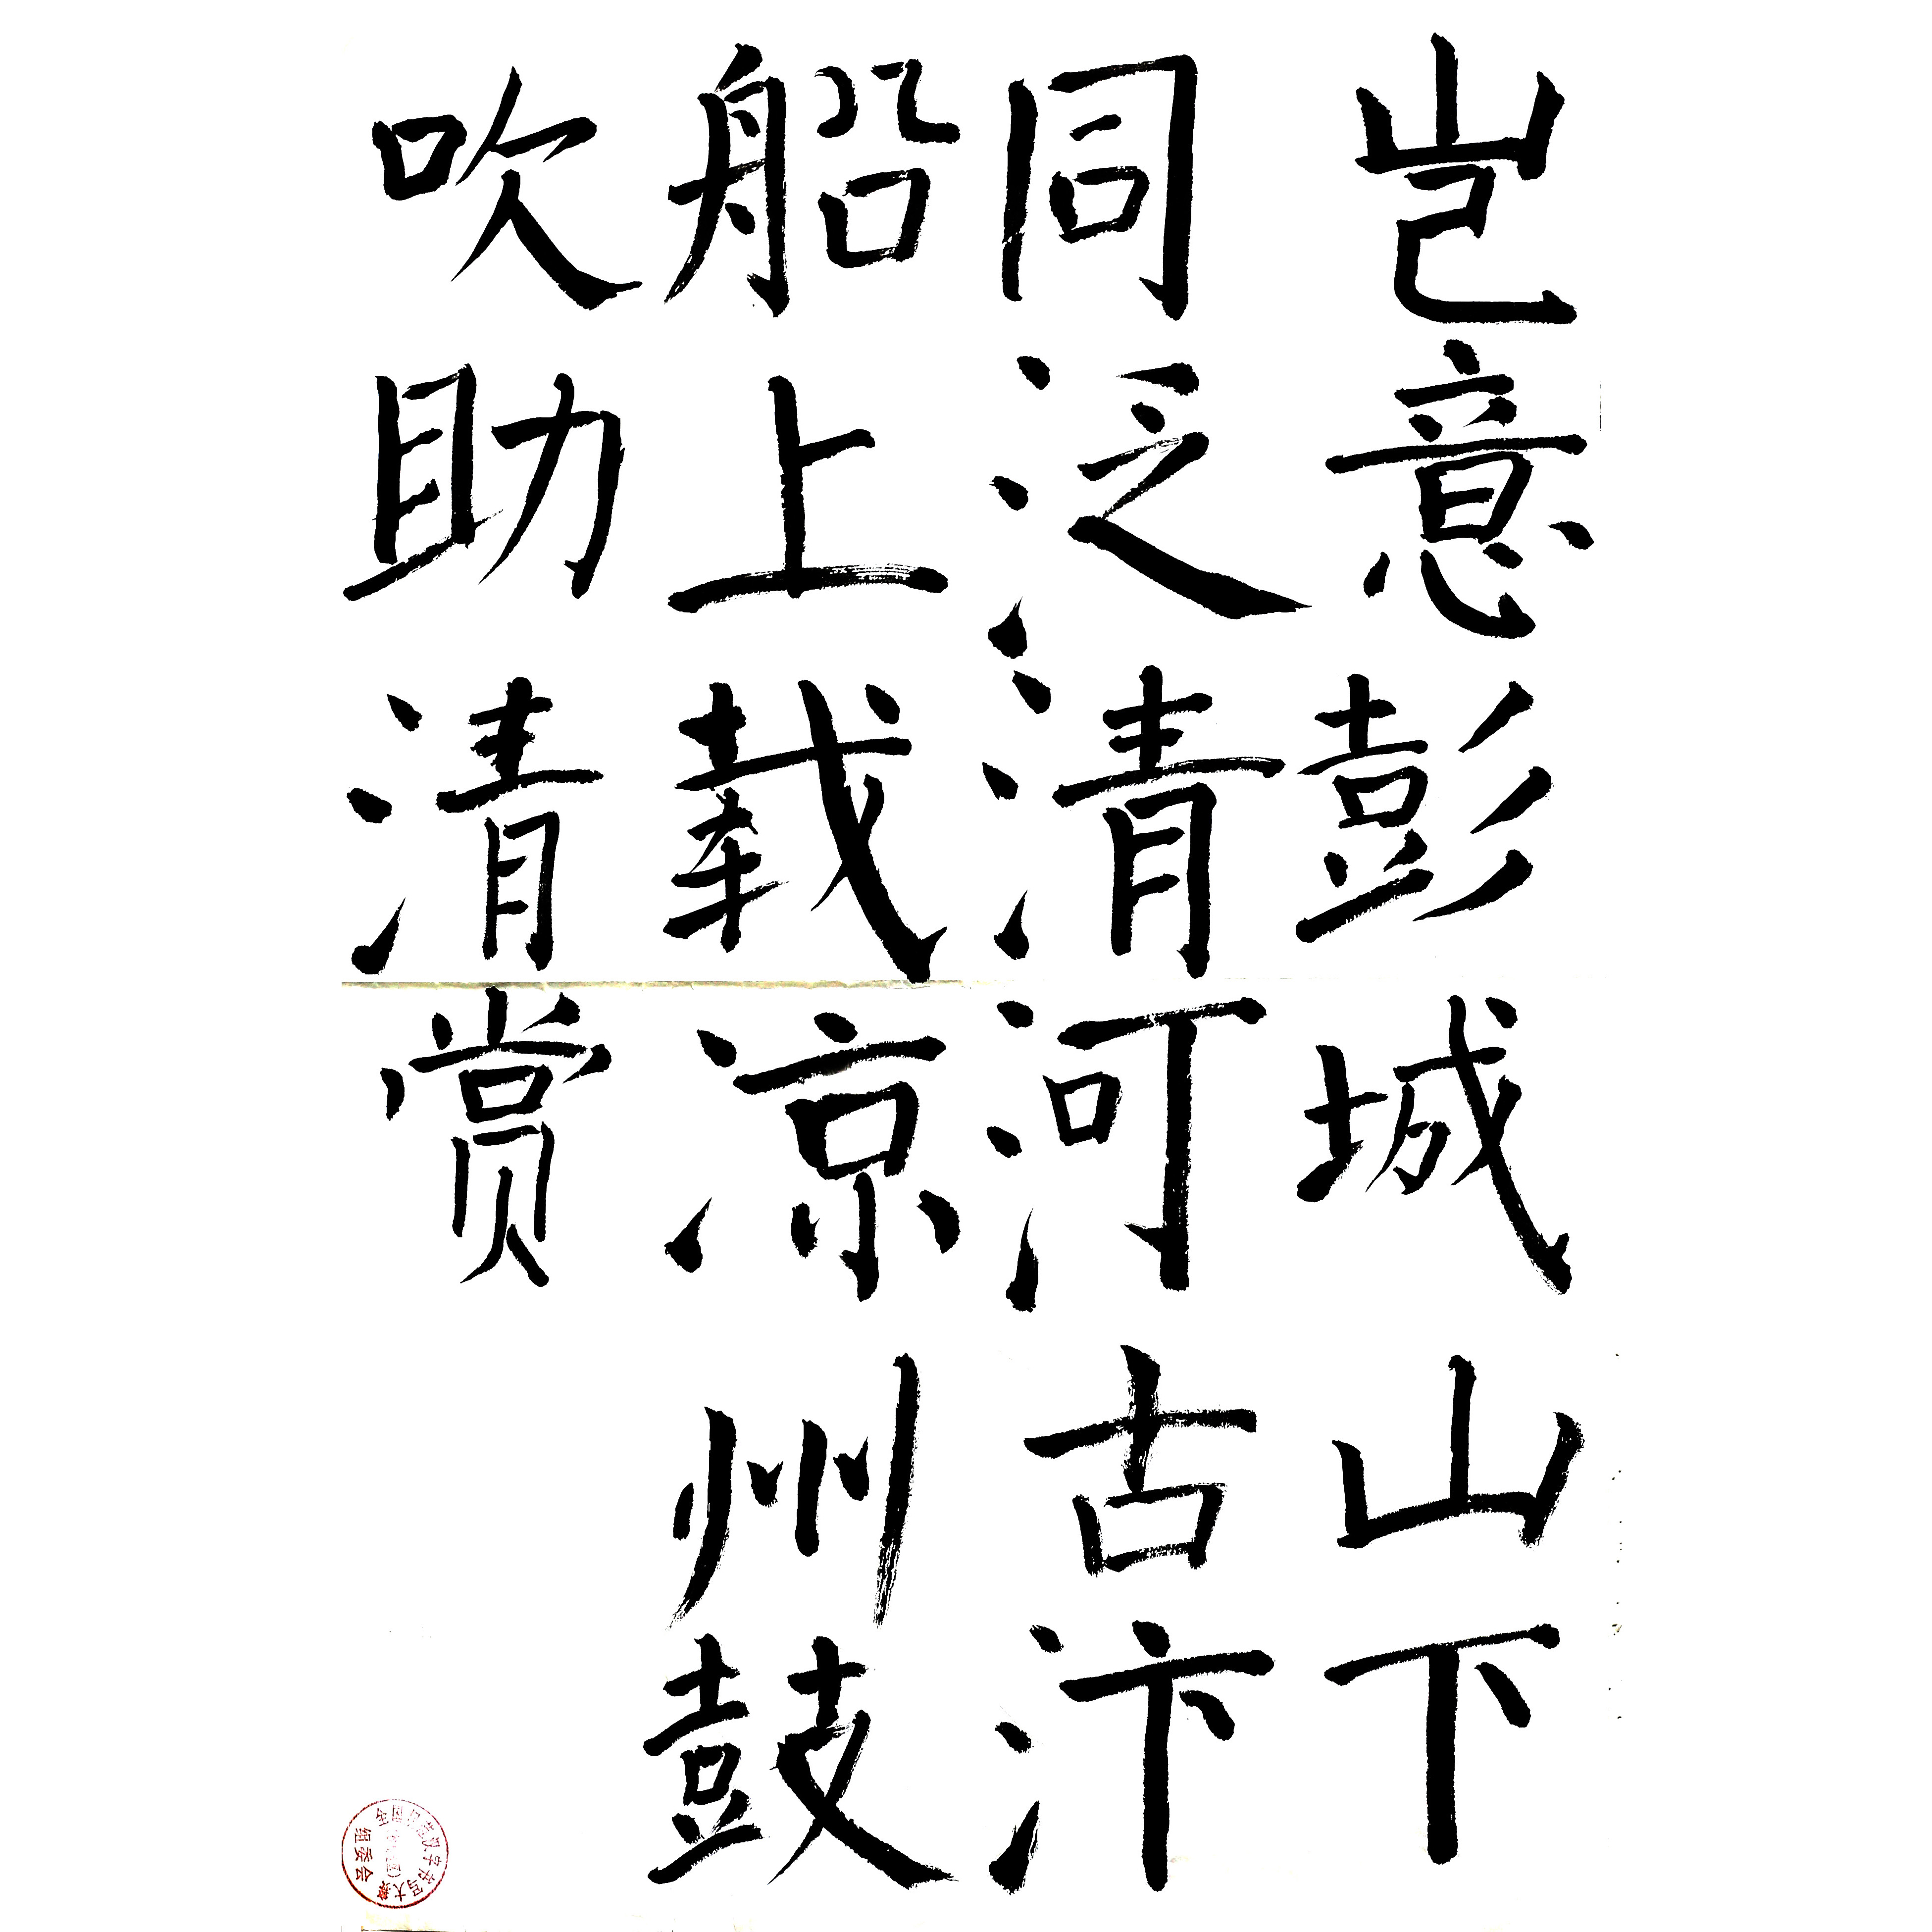 岂意彭城山下
同泛清河古汴
船上载凉州鼓
吹助清赏
组委会